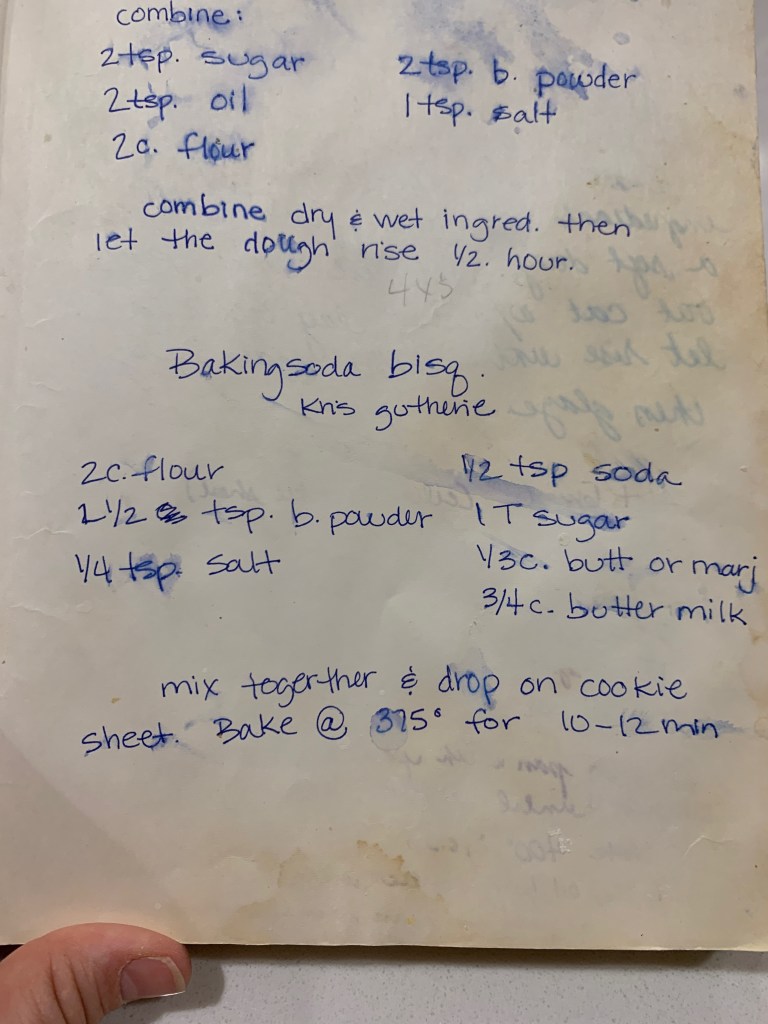 combine:
2tsp. sugar
2tsp. b. powder
2tsp. oil
1 tsp. salt
2c. flour
combine dry & wet ingred. then
let the dough rise 1/2. hour.
4x3
Bakingsoda bisq.
Kris gutherie
2c. flour
1/2 tsp soda
1 1/2 tsp. b. powder
1 T sugar
1/4 tsp. salt
1/3c. butt or marj
3/4c. butter milk
mix togerther & drop on cookie
sheet. Bake @ 375° for 10-12min